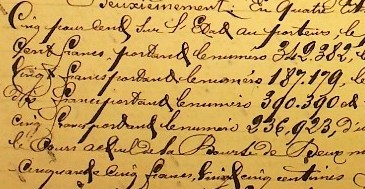 Deuxièmement: En quatre
Cinq pour cent sur l'Etat au porteur, le
Cent francs, portant le numéro 349.382, le
Cinq francs portant le numéro 187.179, le
De francs portant le numéro 390.390 et
cinq francs portant le numéro 236,923, d'u
le Cours actuel de la Bourse de Deux m
Cinquante cinq francs, vingt cinq centimes